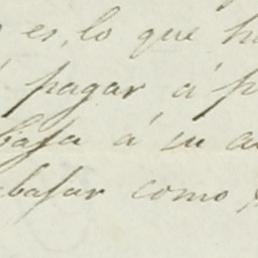 es, lo que
pagar á
baja á su
bajar como